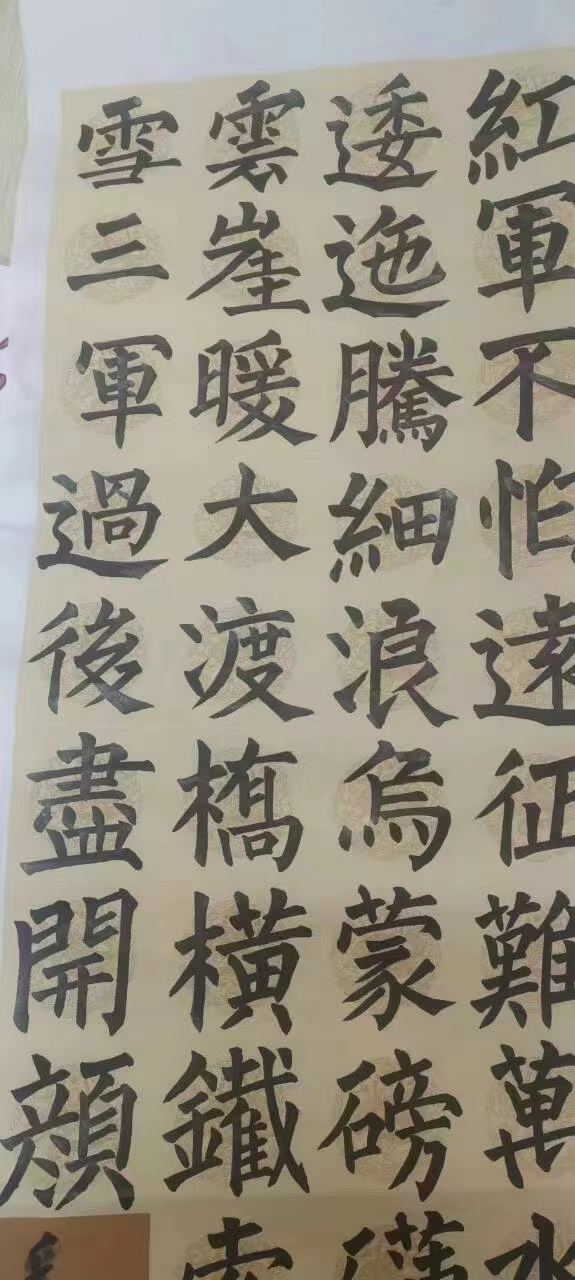 紅軍不怕遠征難萬水
逶迤騰細浪烏蒙磅礴
雲崖暖大渡橋橫鐵索
雪三軍過後盡開顏